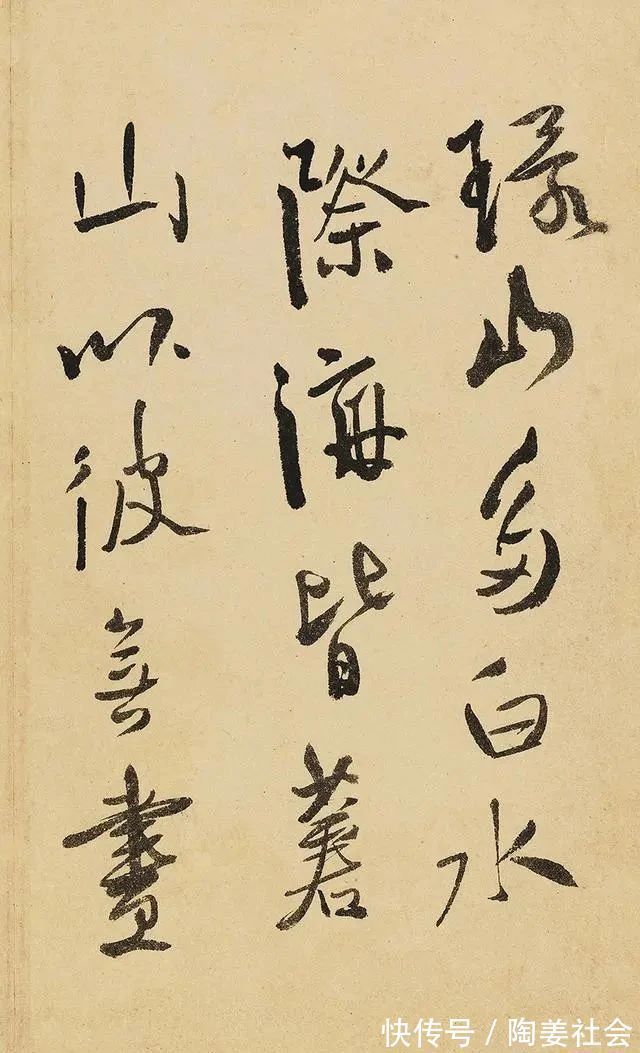 環山多白水
際海皆蒼
山以彼無盡
快传号 / 陶姜社会